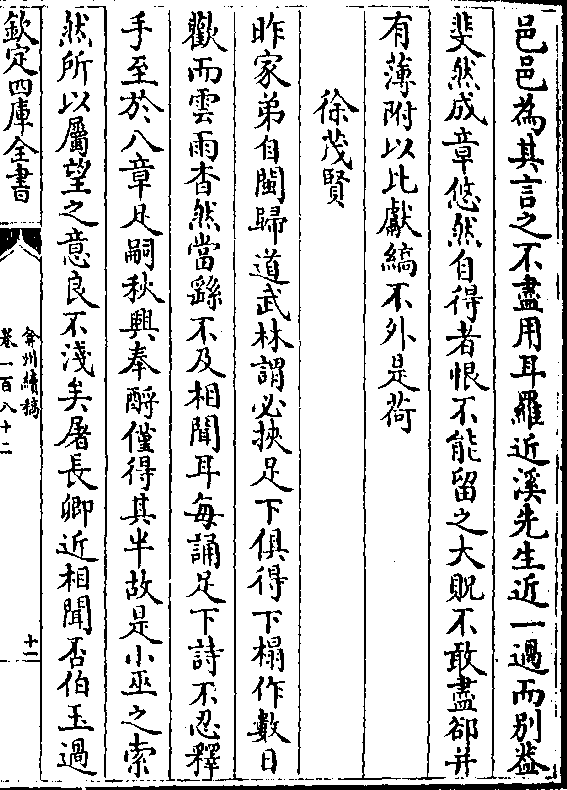 邑邑為其言之不盡用耳羅近溪先生近一過而别益
斐然成章悠然自得者恨不能留之大貺不敢盡卻并
有薄附以比獻縞不外是荷
徐茂賢
昨家弟自閩歸道武林謂必挾足下俱得下榻作數日
歡而雲雨杳然當繇不及相聞耳每誦足下詩不忍釋
手至於八章足嗣秋興奉酧僅得其半故是小巫之索
然所以屬望之意良不淺矣屠長卿近相聞否伯玉過
欽定四庫全書
弇州續稿
卷一百八十二
十一